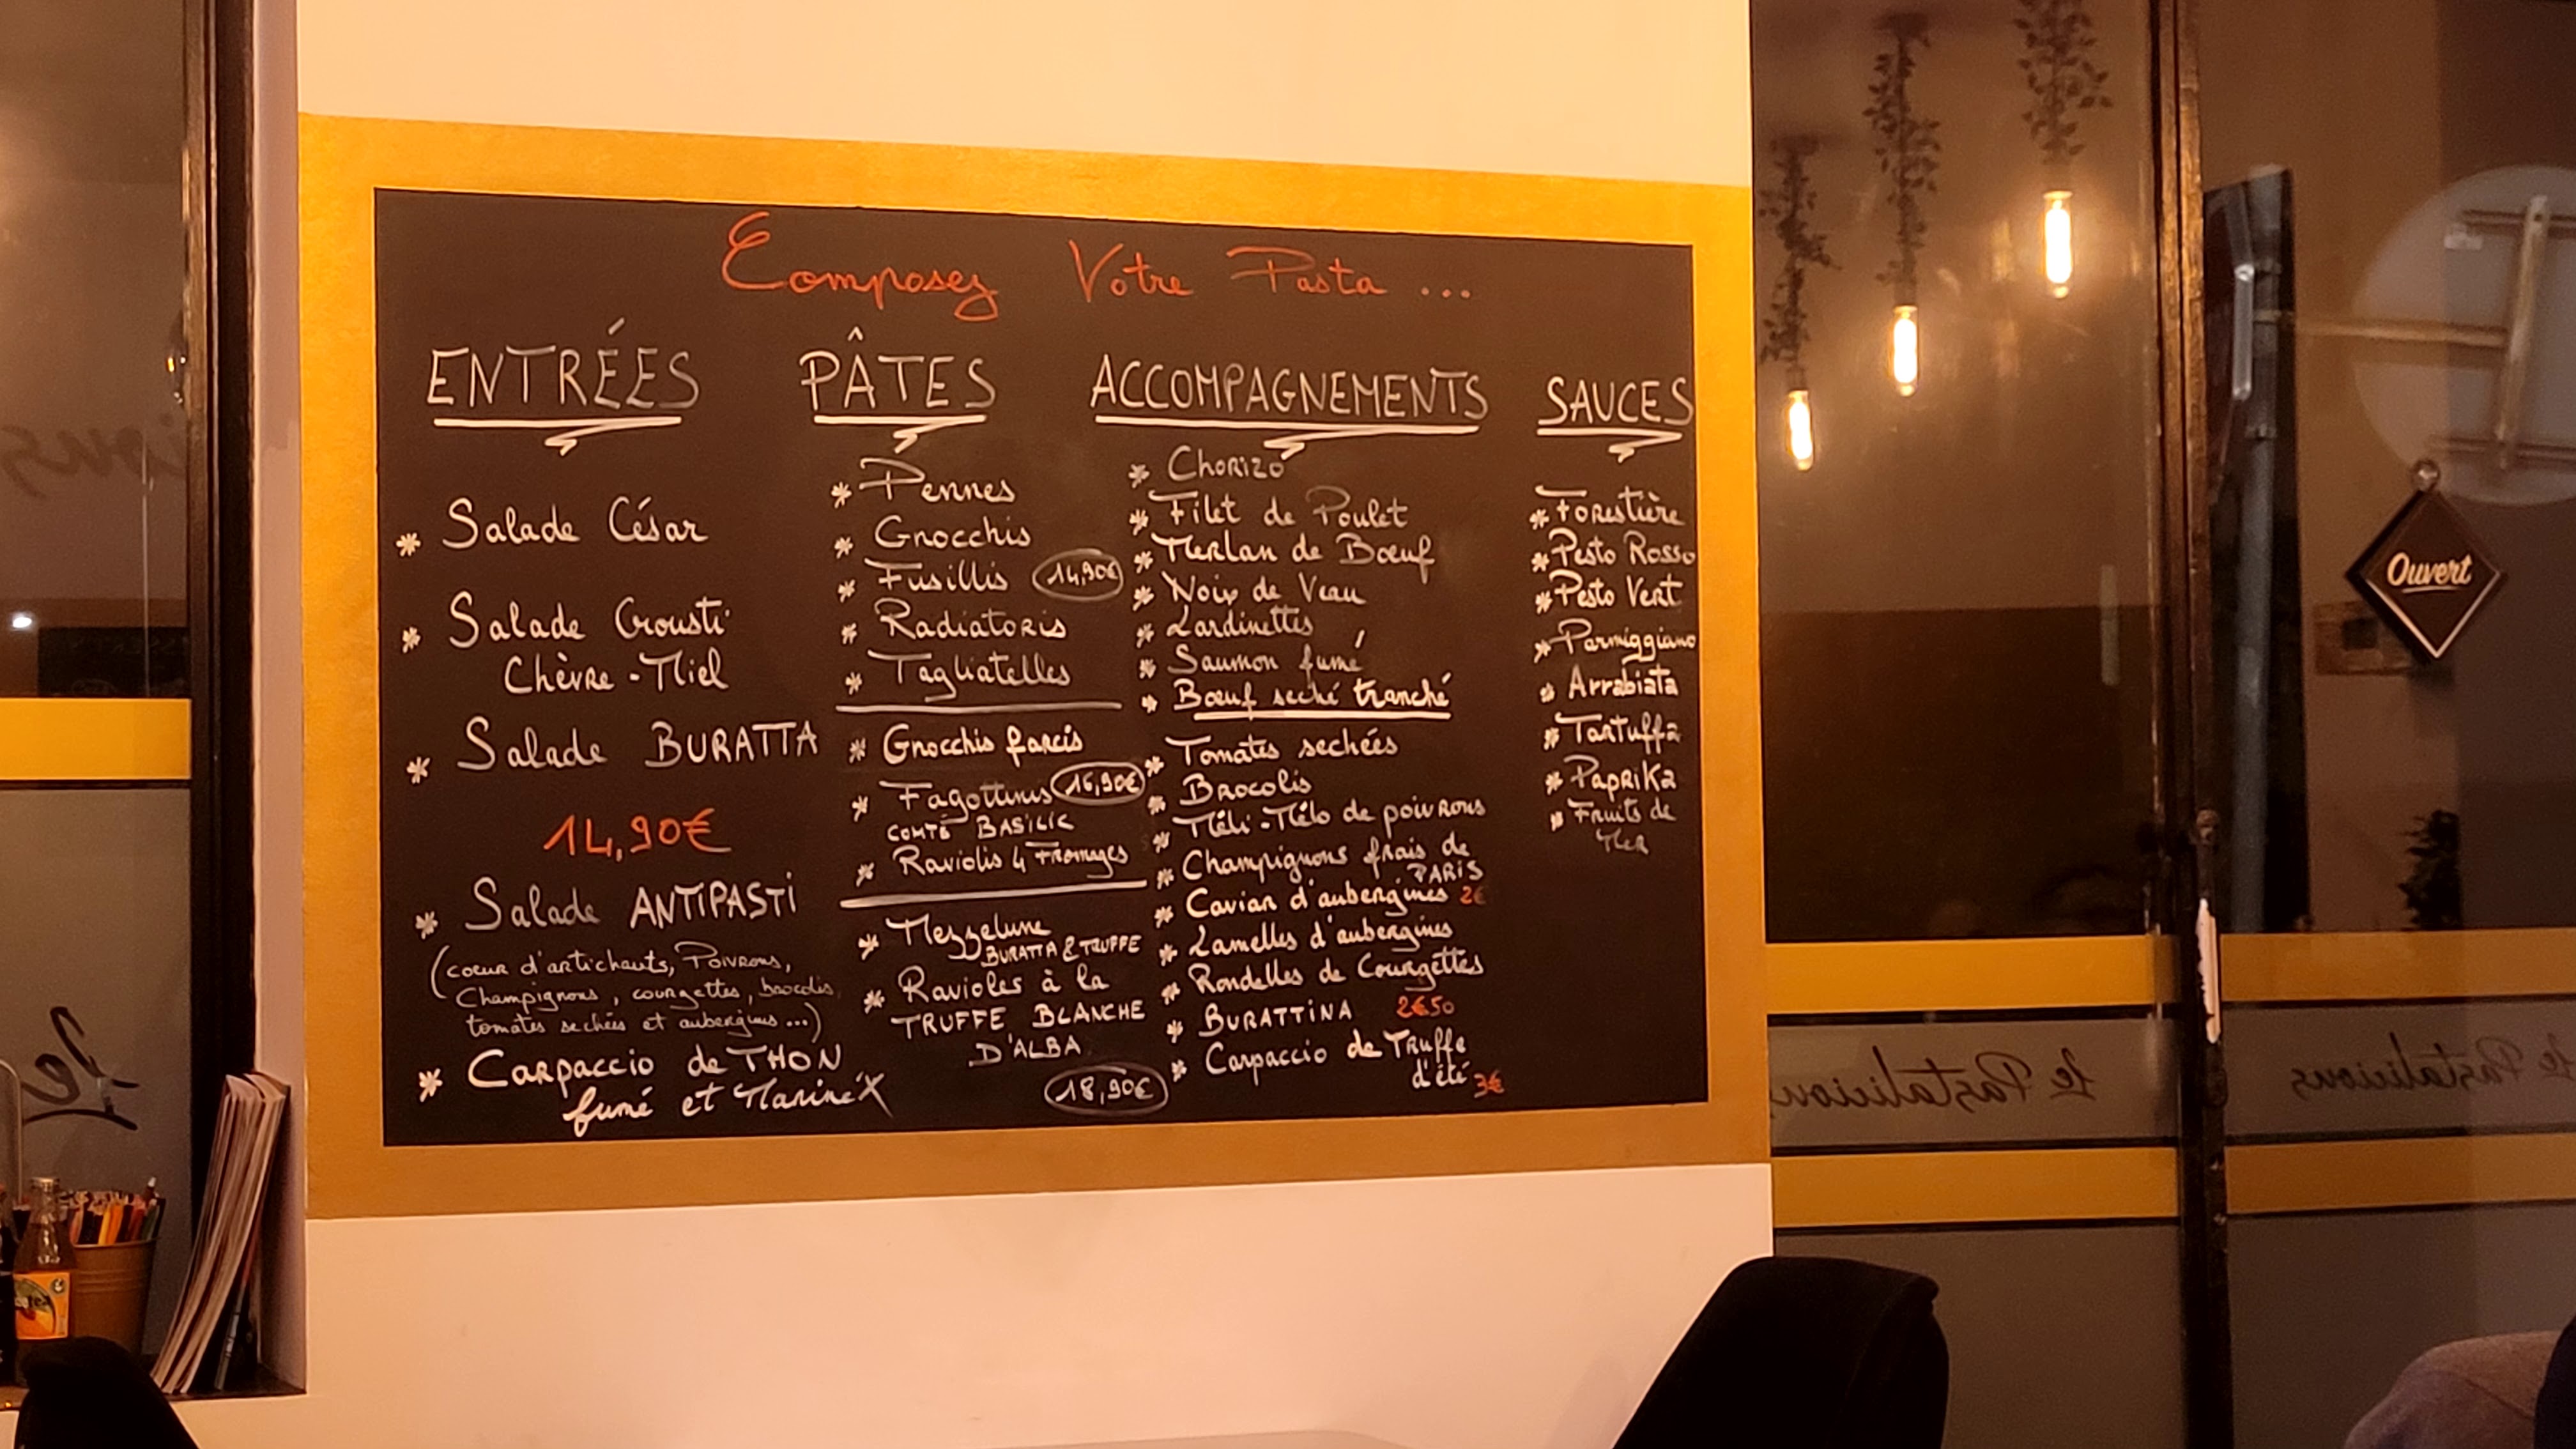 Composez Votre Pasta ...
ENTRÉES
* Salade César
* Salade Crousti
Chèvre - Miel
* Salade BURATTA
14,90€
* Salade ANTIPASTI
(coeur d'artichauts, Poivrons,
Champignons, courgettes, brocolis,
tomates sechées et aubergines ...)
* Carpaccio de THON
fumé et Mariné X
PÂTES
* Pennes
* Gnocchis
* Fusillis 14,90€
* Radiatoris
* Tagliatelles
* Gnocchis farcis
* Fagottinis 16,90€
COMTÉ BASILIC
* Raviolis 4 Fromages
* Mezzelune
BURATTA & TRUFFE
* Ravioles à la
TRUFFE BLANCHE
D'ALBA
18,90€
ACCOMPAGNEMENTS
* Chorizo
* Filet de Poulet
* Merlan de Bœuf
* Noix de Veau
* Lardinettes
* Saumon fumé
* Bœuf seché tranché
* Tomates sechées
* Brocolis
* Méli-Mélo de poivrons
* Champignons frais de
PARIS
* Caviar d'aubergines 2€
* Lamelles d'aubergines
* Rondelles de Courgettes
* BURATTINA 2€50
* Carpaccio de Truffe
d'été 3€
SAUCES
* Forestière
* Pesto Rosso
* Pesto Vert
* Parmiggiano
* Arrabiata
* Tartuffa
* Paprika
* Fruits de
Mer
Ouvert
Le Pastalicious
Le Pastalicious
Le